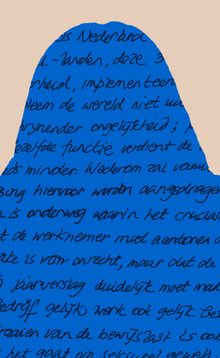 als Nederland
d. -landen, deze 3
rheid, implementeer
bleem de wereld niet uit
wrijnender ongelijkheid;
dezelfde functie verdient de
ds minder. Wederom zal
sing hiervoor worden aangedragen
n is onderwijs waarin het cruciaal
t de werknemer moet aantonen d
ake is van onrecht, maar dat de
n jaarverslag duidelijk moet mak
bedrijf gelijk werk ook gelijk be
draaien van de bewijslast is oo
het gaat om seksueel